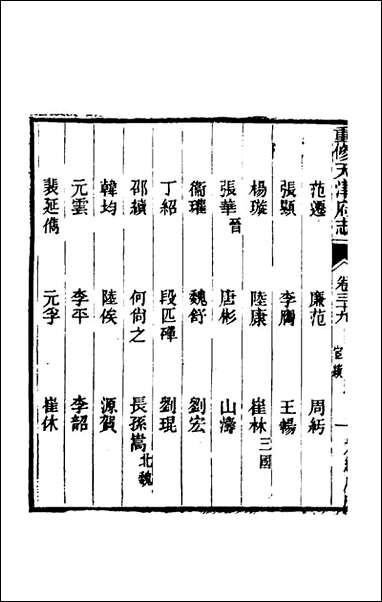 重修天津府志
卷三十九
宦績
一
范遷 廉范 周紆
張顯 李膺 王暢
楊璇 陸康 崔林三國
張華晉 唐彬 山濤
衞瓘 魏舒 劉宏
丁紹 段匹磾 劉琨
邵續 何尚之 長孫嵩北魏
韓均 陸俟 源賀
元雲 李平 李韶
裴延儁 元孚 崔休